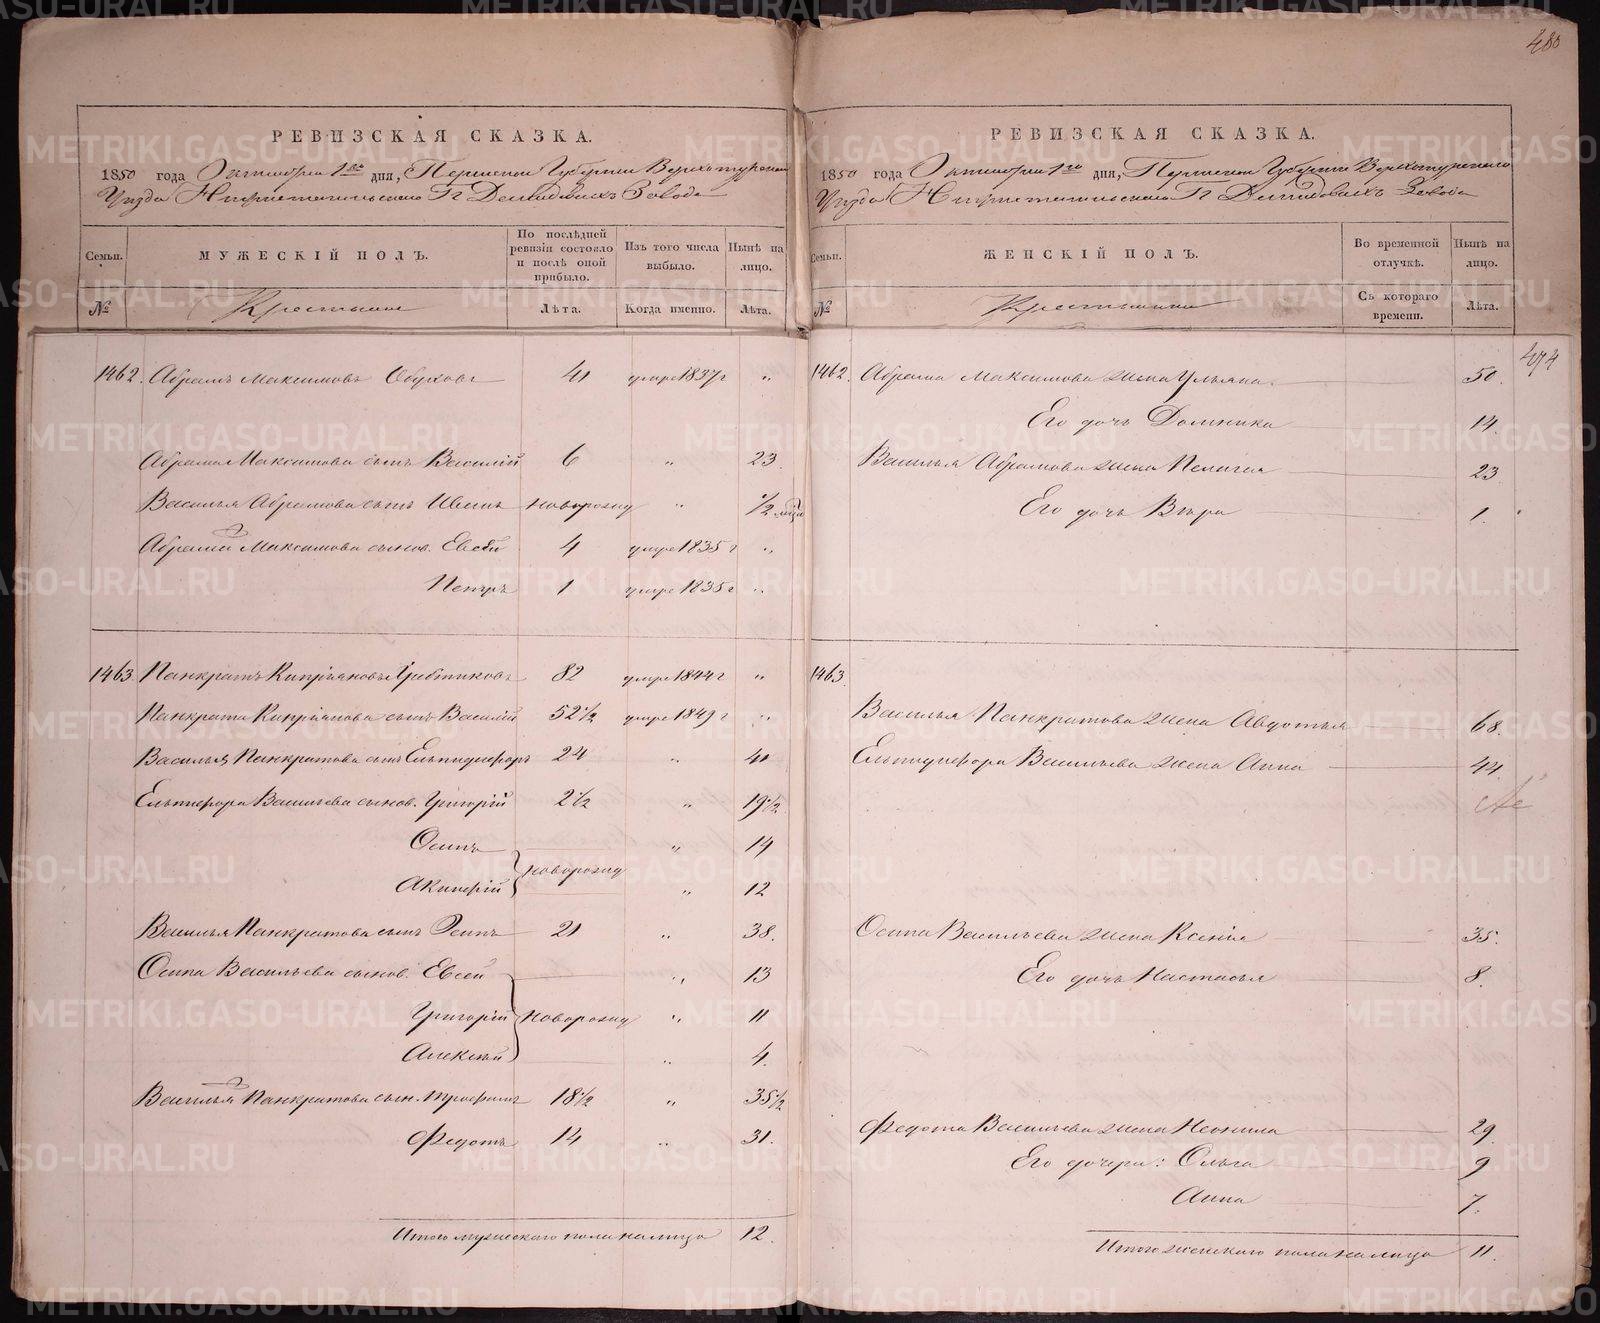 480
РЕВИЗСКАЯ СКАЗКА.
1850 года Октября 1го дня, Пермской Губернии Верхотурскаго
Уезда Нижнетагильскаго Гг Демидовыхъ Завода
Семьи.
МУЖЕСКІЙ ПОЛЪ.
По послѣдней ревизіи состояло и послѣ оной прибыло.
Изъ того числа выбыло.
Нынѣ на лицо.
№
Крестьяне
Лѣта.
Когда именно.
Лѣта.
1462. Абрамъ Максимовъ Обуховъ 41 умре 1837 г "
Абрама Максимова сынъ Василій 6 " 23.
Василья Абрамова сынъ Иванъ новорожд " 1/2
Абрама Максимова сынов. Евсей 4 умре 1835 г "
Петръ 1 умре 1835 г "
1463 Панкратъ Кипріяновъ 82 умре 1844 г "
Панкрата Кипріянова сынъ Василій 52 1/2 умре 1849 г "
Василья Панкратова сынъ Ельпидифоръ 24 " 41
Ельпифора Васильева сынов. Григорій 2 1/2 " 19 1/2
Осипъ " 14
новорожд
Акинфій " 12
Василья Панкратова сынъ Осипъ 21 " 38.
Осипа Васильева сынов. Евсей " 13
Григорій новорожд " 11
Алексѣй " 4.
Василья Панкратова сын. Трофимъ 18 1/2 " 35 1/2
Федотъ 14 " 31.
Итого мужескаго пола на лицо 12.
РЕВИЗСКАЯ СКАЗКА.
1850 года Октября 1го дня, Пермской Губерніи Верхотурскаго
Уезда Нижнетагильскаго Гг Демидовыхъ Завода
Семьи.
ЖЕНСКІЙ ПОЛЪ.
Во временной отлучкѣ.
Нынѣ на лицо.
№
Крестьянки
Съ котораго времени.
Лѣта.
474
1462. Абрама Максимова жена Ульяна 50.
Его дочь Домника 14.
Василья Абрамова жена Пелагея 23
Его дочь Вѣра 1.
1463.
Василья Панкратова жена Авдотья 68.
Ельпидифора Васильева жена Анна 44
Осипа Васильева жена Ксенія 35.
Его дочь Настасья 8.
Федота Васильева жена Неонила 29.
Его дочери: Ольга 9
Анна 7.
Итого женскаго пола на лицо 11.
METRIKI.GASO-URAL.RU